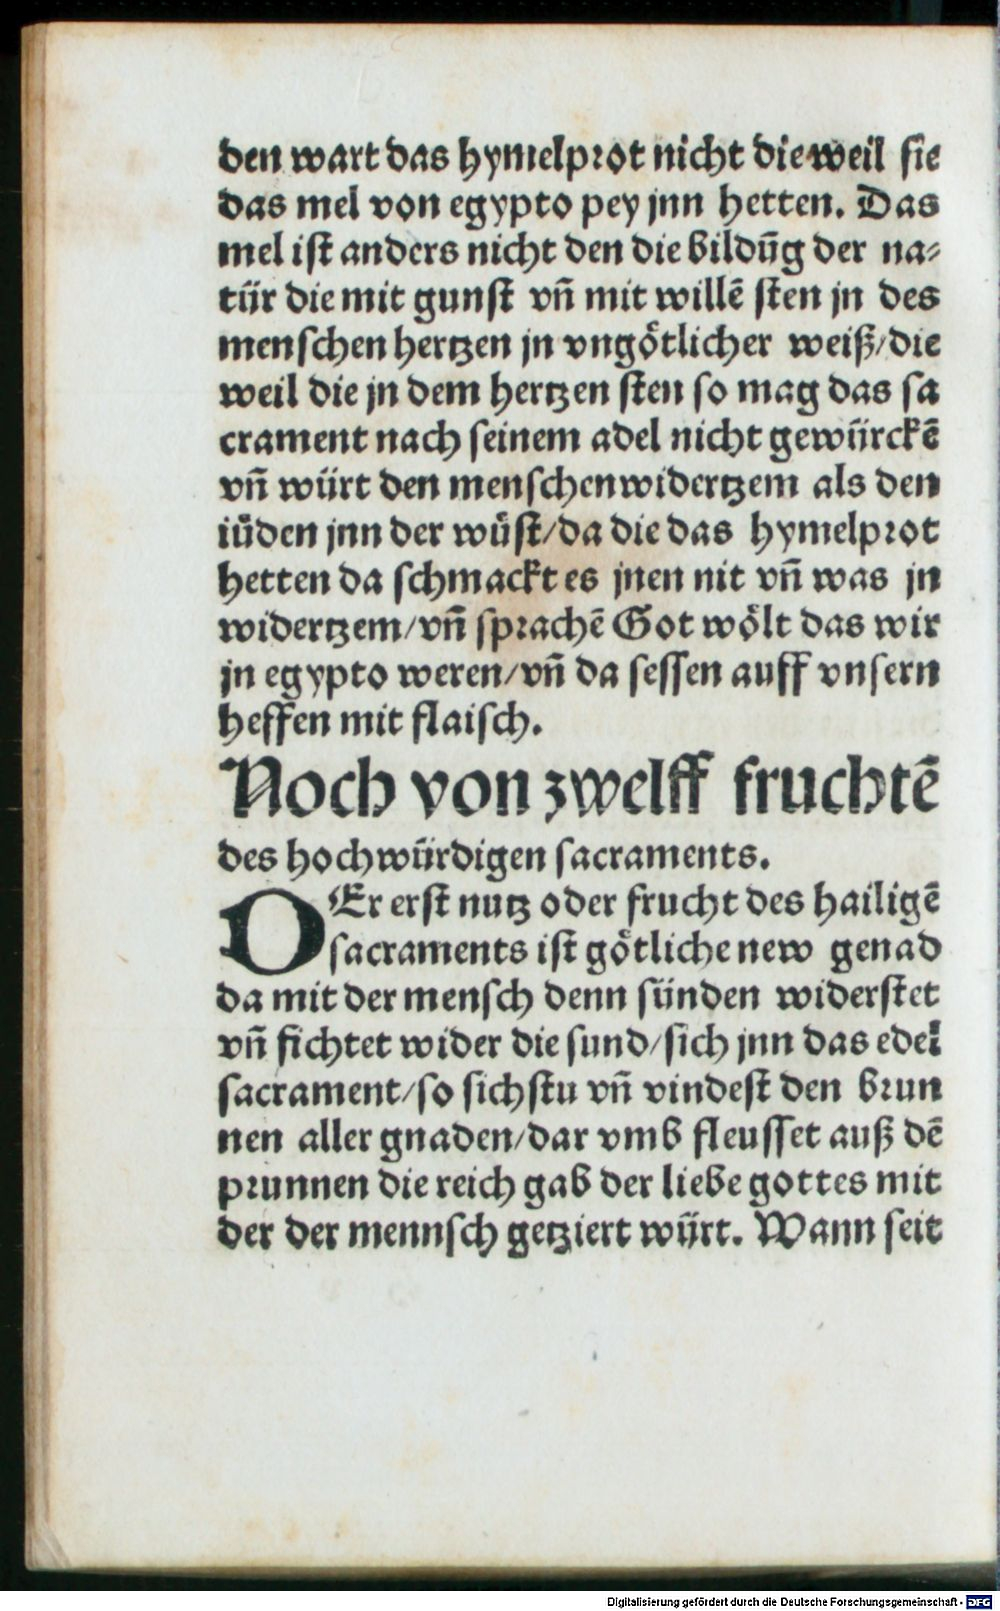 den wart das hymelprot nicht die weil sie
das mel von egypto pey jnn hetten. Das
mel ist anders nicht den die bildūg der na⸗
tür die mit gunst vn̄ mit willē sten jn des
menschen hertzen jn vngötlicher weiß/die
weil die jn dem hertzen sten so mag das sa
crament nach seinem adel nicht gewürckē
vn̄ würt den menschen widertzem als den
iůden jnn der wüst/da die das hymelprot
hetten da schmackt es jnen nit vn̄ was jn
widertzem/vn̄ sprachē Got wölt das wir
jn egypto weren/vn̄ da sessen auff vnsern
heffen mit flaisch.
Noch von zwelff fruchtē
des hochwürdigen sacraments.
DEr erst nutz oder frucht des hailigē
sacraments ist götliche new genad
da mit der mensch denn sünden widerstet
vn̄ fichtet wider die sund/sich jnn das edel
sacrament/so sichstu vn̄ vindest den brun
nen aller gnaden/dar vmb fleusset auß dē
prunnen die reich gab der liebe gottes mit
der der mennsch getziert würt. Wann seit
Digitalisierung gefördert durch die Deutsche Forschungsgemeinschaft - DFG